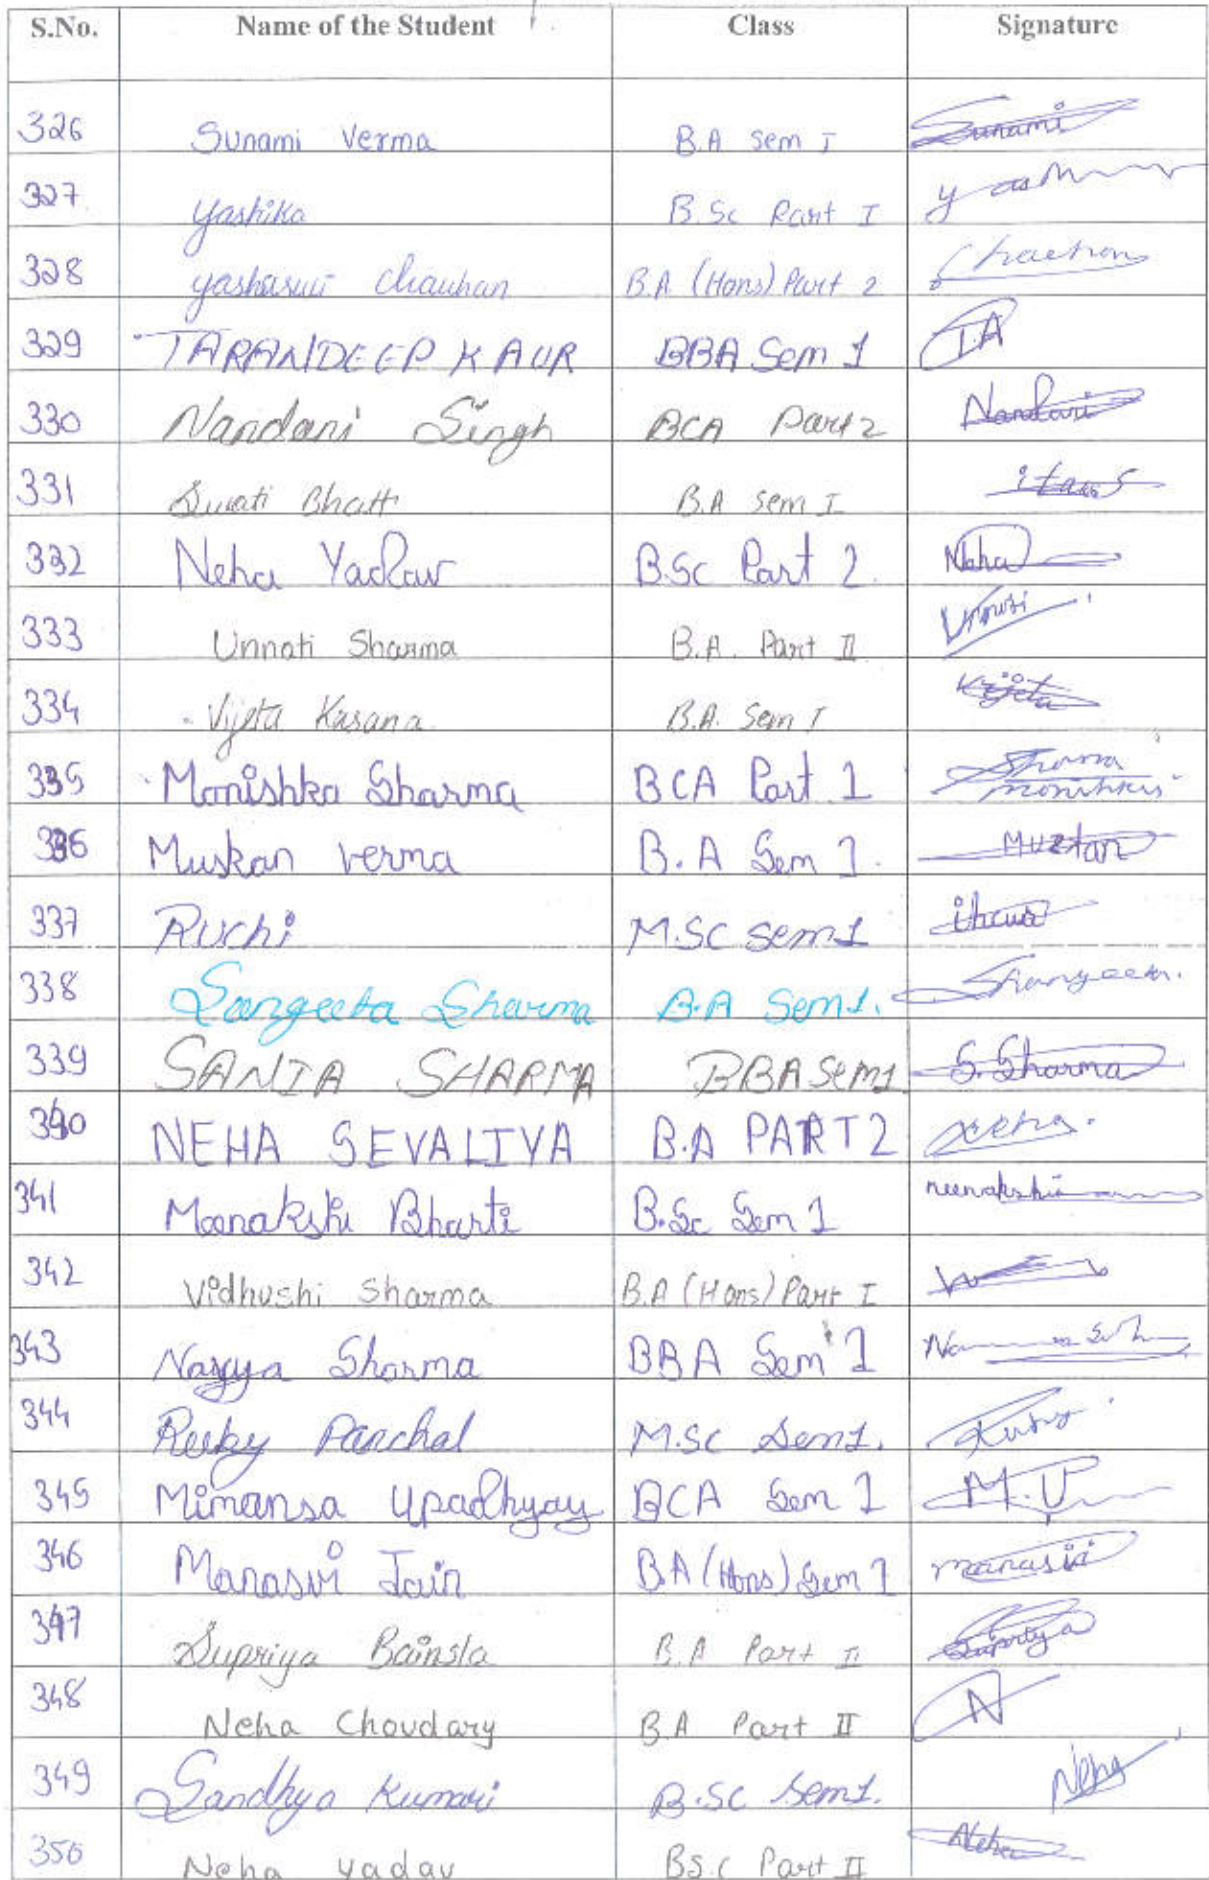 S.No. Name of the Student Class Signature
326 Sunami Verma B.A Sem I Sunami
327 Yashika B.Sc Part I
328 yashaswi Chauhan B.A (Hons) Part 2
329 TARANDEEP KAUR BBA Sem 1 TA
330 Nandani Singh BCA Part 2 Nandani
331 Swati Bhatt B.A Sem I itawS
332 Neha Yadav B.Sc Part 2. Neha
333 Unnati Sharma B.A. Part II
334 Vijeta Kasana B.A. Sem I Vijeta
335 Monishka Sharma BCA Part 1 Sharma
336 Muskan verma B.A Sem 1.
337 Ruchi M.SC sem1
338 Sangeeta Sharma B.A Sem1.
339 SANIA SHARMA BBA SEM1 S.Sharma
340 NEHA SEVALIYA B.A PART 2 Neha.
341 Meenakshi Bharti B.Sc Sem 1 meenakshi
342 Vidhushi Sharma B.A (Hons) Part I
343 Navya Sharma BBA Sem 1
344 Ruby Panchal M.SC Sem1. Ruby
345 Mimansa Upadhyay BCA Sem 1 M.U
346 Manasvi Jain B.A (Hons) Sem 1 manasvi
347 Supriya Bainsla B.A Part II Supriya
348 Neha Choudary B.A Part II N
349 Sandhya Kumari B.SC Sem1. Neha
350 Neha yadav BS.C Part II Neha